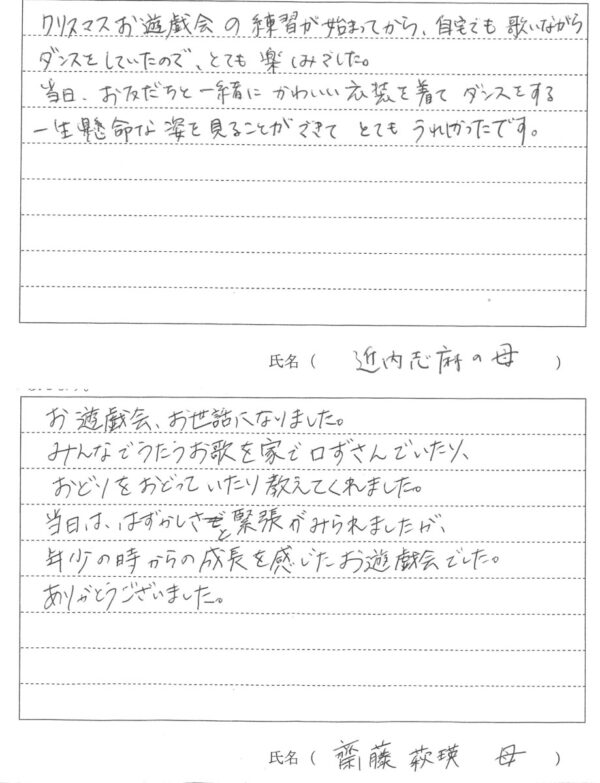 クリスマスお遊戯会の練習が始まってから、自宅でも歌いながら
ダンスをしていたので、とても楽しみでした。
当日、お友だちと一緒にかわいい衣装を着てダンスをする
一生懸命な姿を見ることができてとてもうれしかったです。
氏名（ 近内志麻の母 ）
お遊戯会、お世話になりました。
みんなでうたうお歌を家で口ずさんでいたり、
おどりをおどっていたり教えてくれました。
当日は、はずかしさと緊張がみられましたが、
年少の時からの成長を感じたお遊戯会でした。
ありがとうございました。
氏名（ 齋藤萩瑛 母 ）